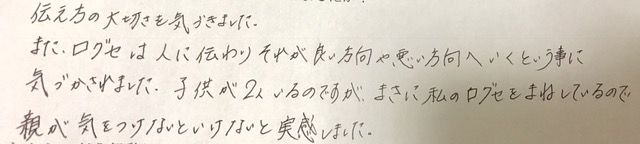 伝え方の大切さを気づきました。
また、口グセは人に伝わりそれが良い方向や、悪い方向へいくという事に
気づかされました。子供が2人いるのですが、まさに私の口グセをまねしているので
親が気をつけないといけないと実感しました。